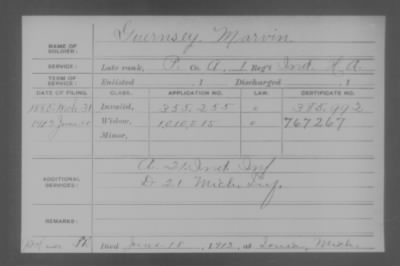 Guernsey, Marvin
NAME OF SOLDIER:
SERVICE: Late rank, P. Co. A, 1 Reg't Ind. H. A.
TERM OF SERVICE: Enlisted , 1 Discharged , 1
DATE OF FILING. CLASS. APPLICATION NO. LAW. CERTIFICATE NO.
Invalid, 355,255 385,992
1912 June Widow, 767267
Minor,
ADDITIONAL SERVICES:
A. 21 Ind Inf
D 21 Mich Inf.
REMARKS:
Died June 18, 1912, at Ionia, Mich.